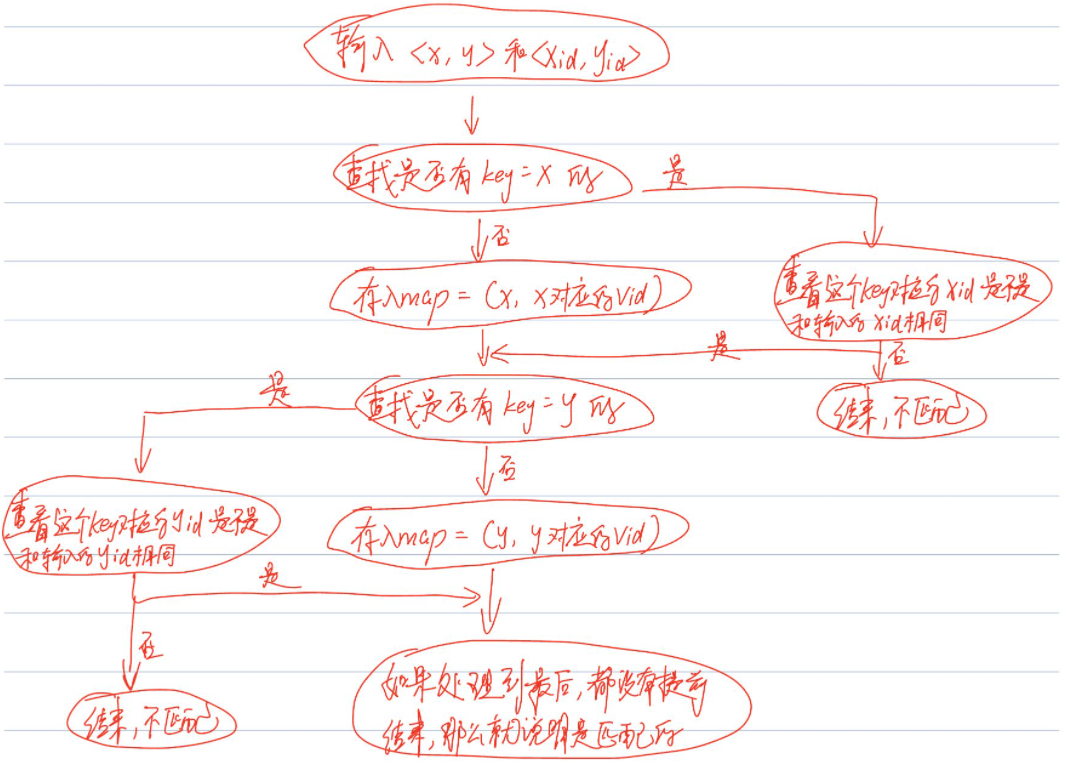 输入<x, y>和<xid, yid>
查找是否有key=x的
是
否
存入map = (x, x对应的vid)
查看这个key对应的xid是不是
和输入的xid相同
是
否
结束,不匹配
查找是否有key=y的
是
否
查看这个key对应的yid是不是
和输入的yid相同
存入map = (y, y对应的vid)
是
否
结束,不匹配
如果处理到最后,都没有提前
结束,那么就说明是匹配的